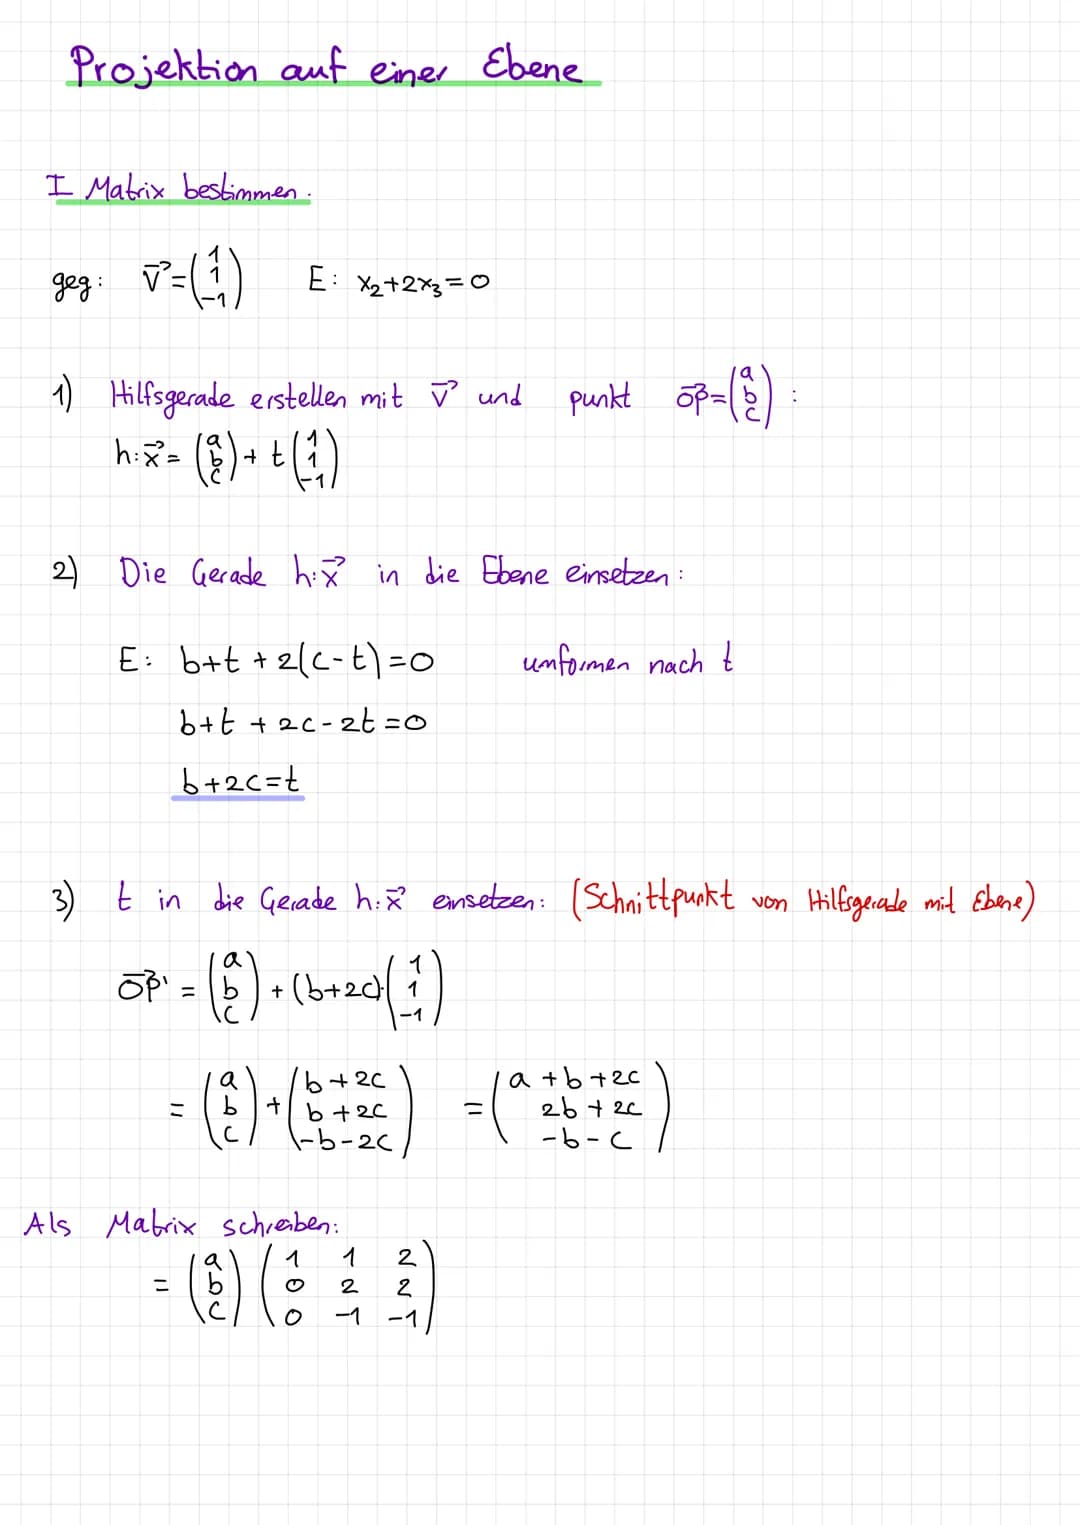 Projektion auf einer Ebene
I Matrix bestimmen.
geg: v⃗=(1 1 -1) E: x₂+2x₃=0
1) Hilfsgerade erstellen mit v⃗ und punkt OP⃗=(a b c) :
h:x⃗= (a b c)+ t(1 1 -1)
2) Die Gerade h:x⃗ in die Ebene einsetzen:
E: b+t +2(c-t)=0 umformen nach t
b+t +2c-2t=0
b+2c=t
3) t in die Gerade h:x⃗ einsetzen: (Schnittpunkt von Hilfsgerade mit Ebene)
OP⃗' = (a b c) + (b+2c)·(1 1 -1)
= (a b c) + (b+2c b+2c -b-2c) = (a+b+2c 2b+2c -b-c)
Als Matrix schreiben:
= (a b c) (1 1 2 0 2 2 0 -1 -1)